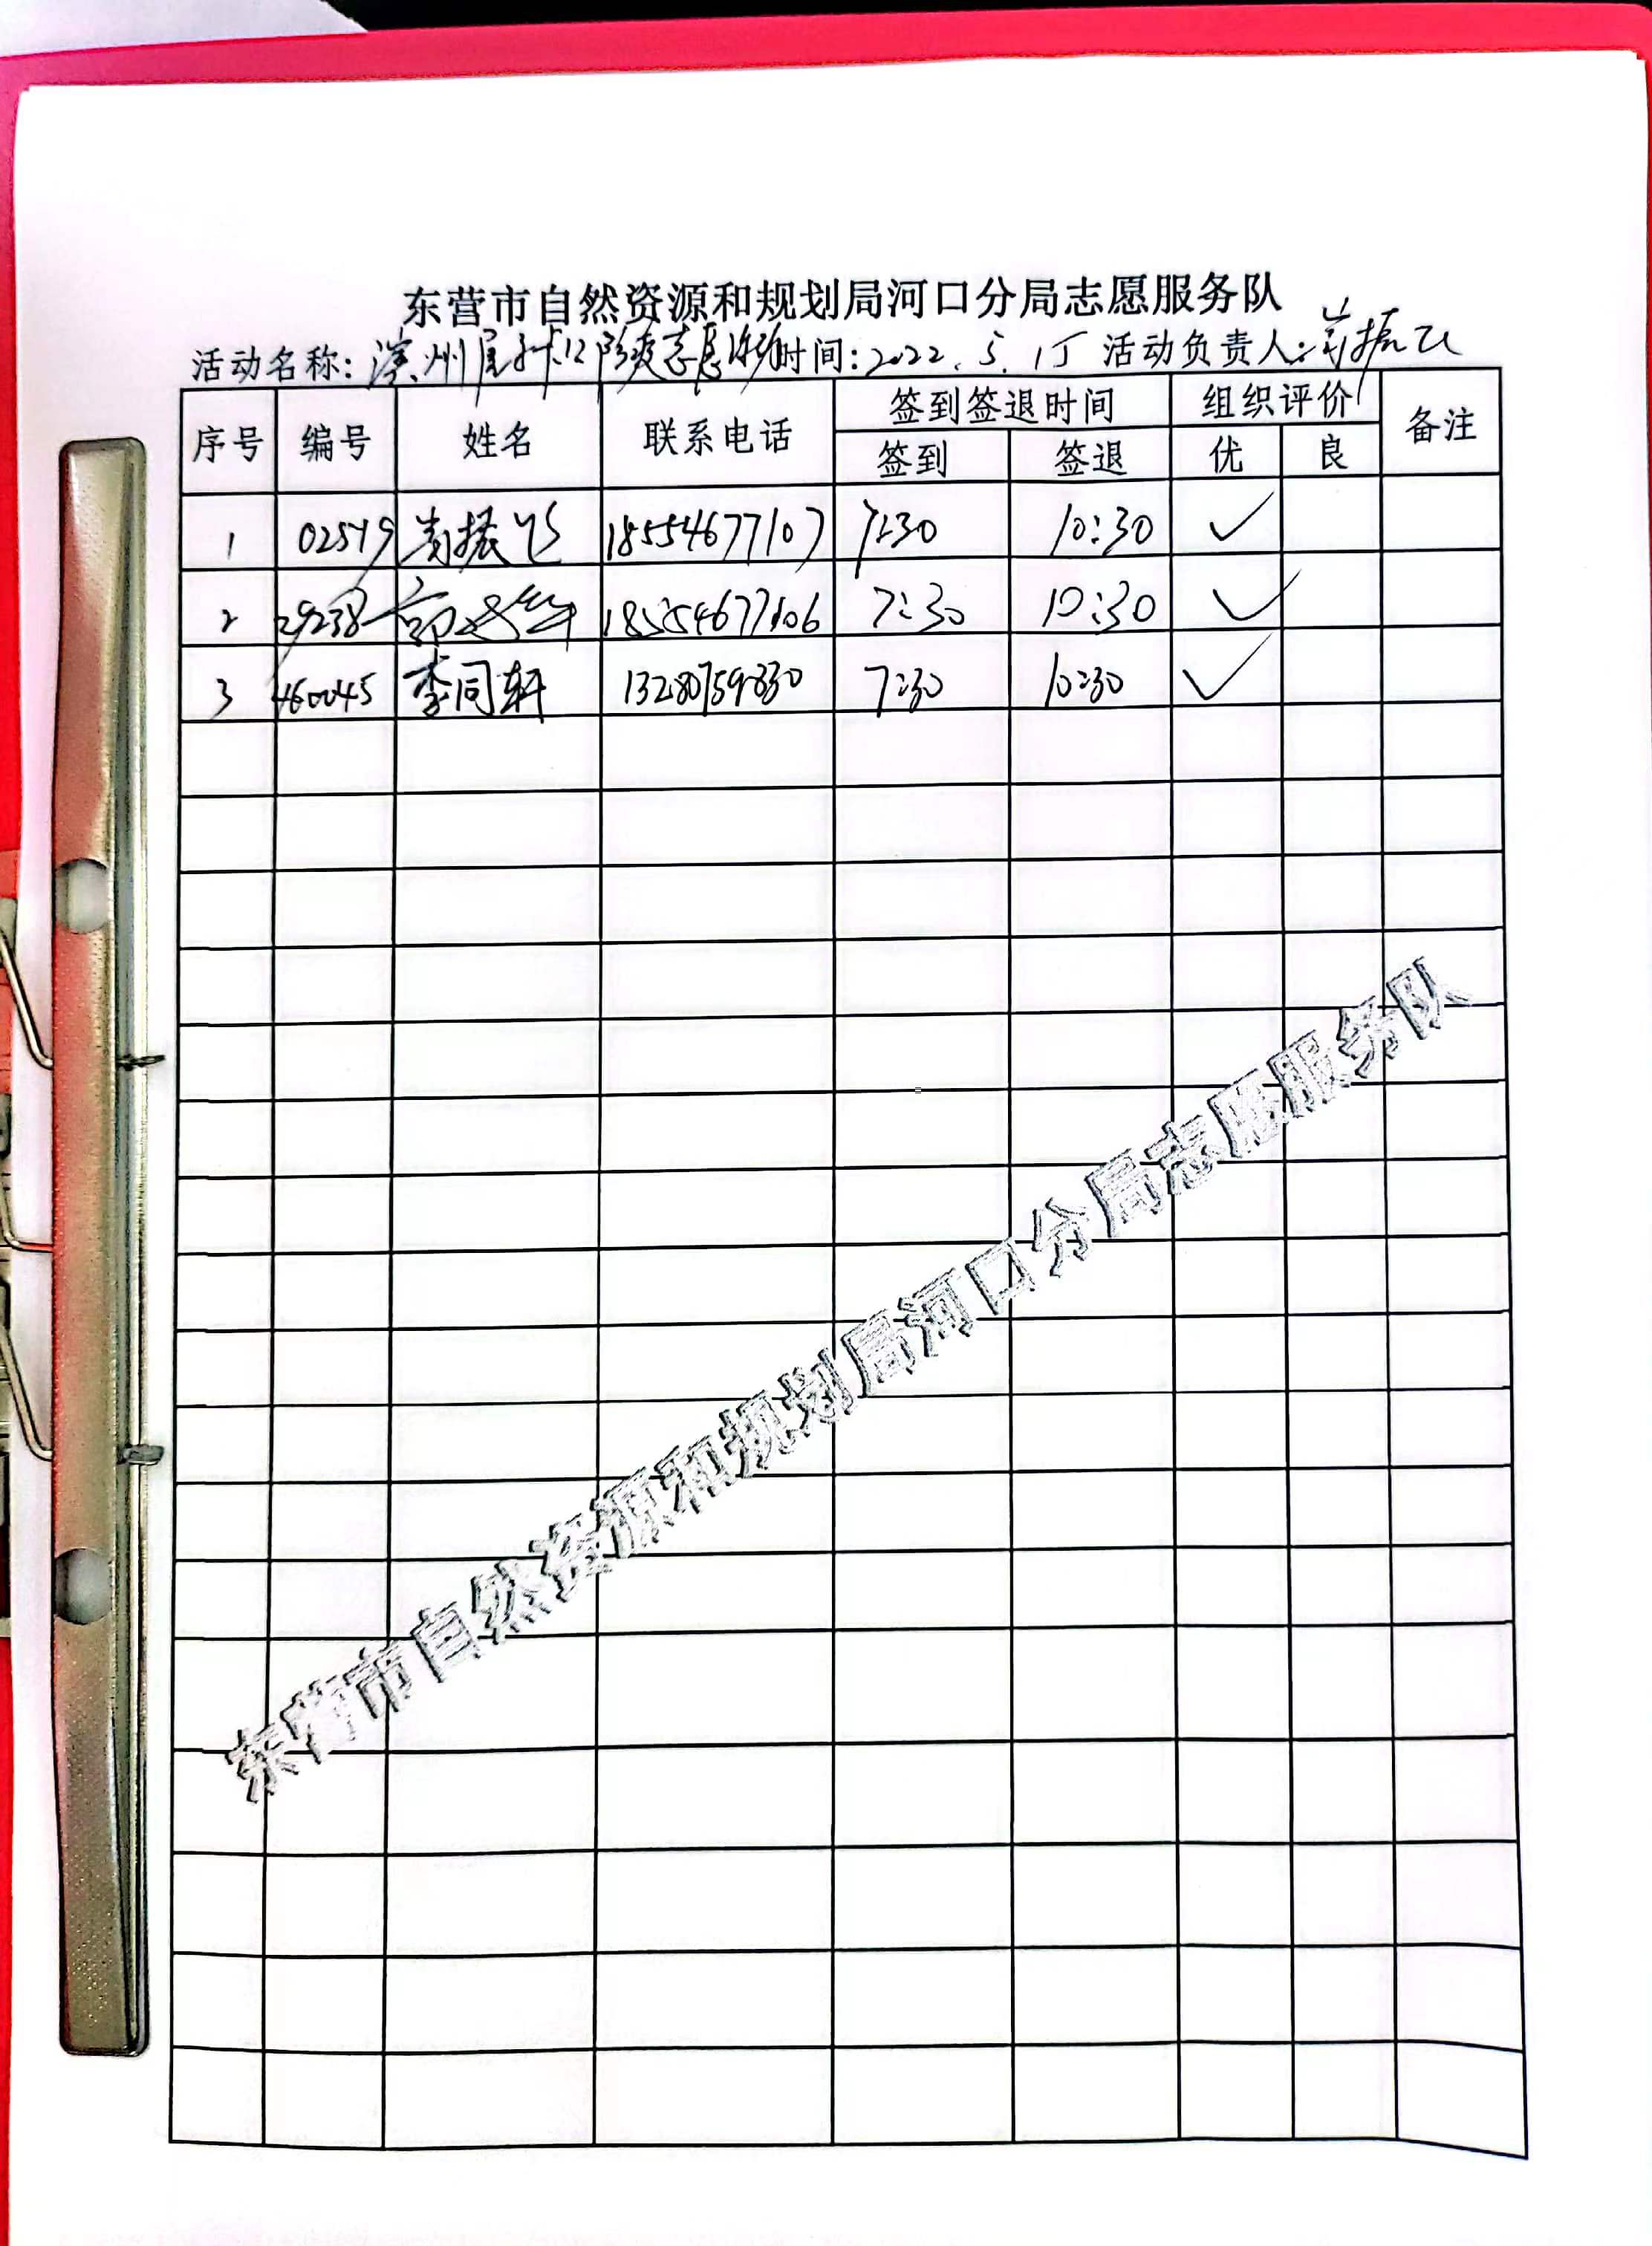 东营市自然资源和规划局河口分局志愿服务队
活动名称: 滨州 防疫志愿活动 时间: 2022.5.15 活动负责人: 振飞
序号 编号 姓名 联系电话 签到签退时间 组织评价 备注
签到 签退 优 良
1 02579 振飞 18554677107 7:30 10:30 ✓
2 29238 18554677106 7:30 10:30 ✓
3 460045 李同轩 13280759830 7:30 10:30 ✓
东营市自然资源和规划局河口分局志愿服务队